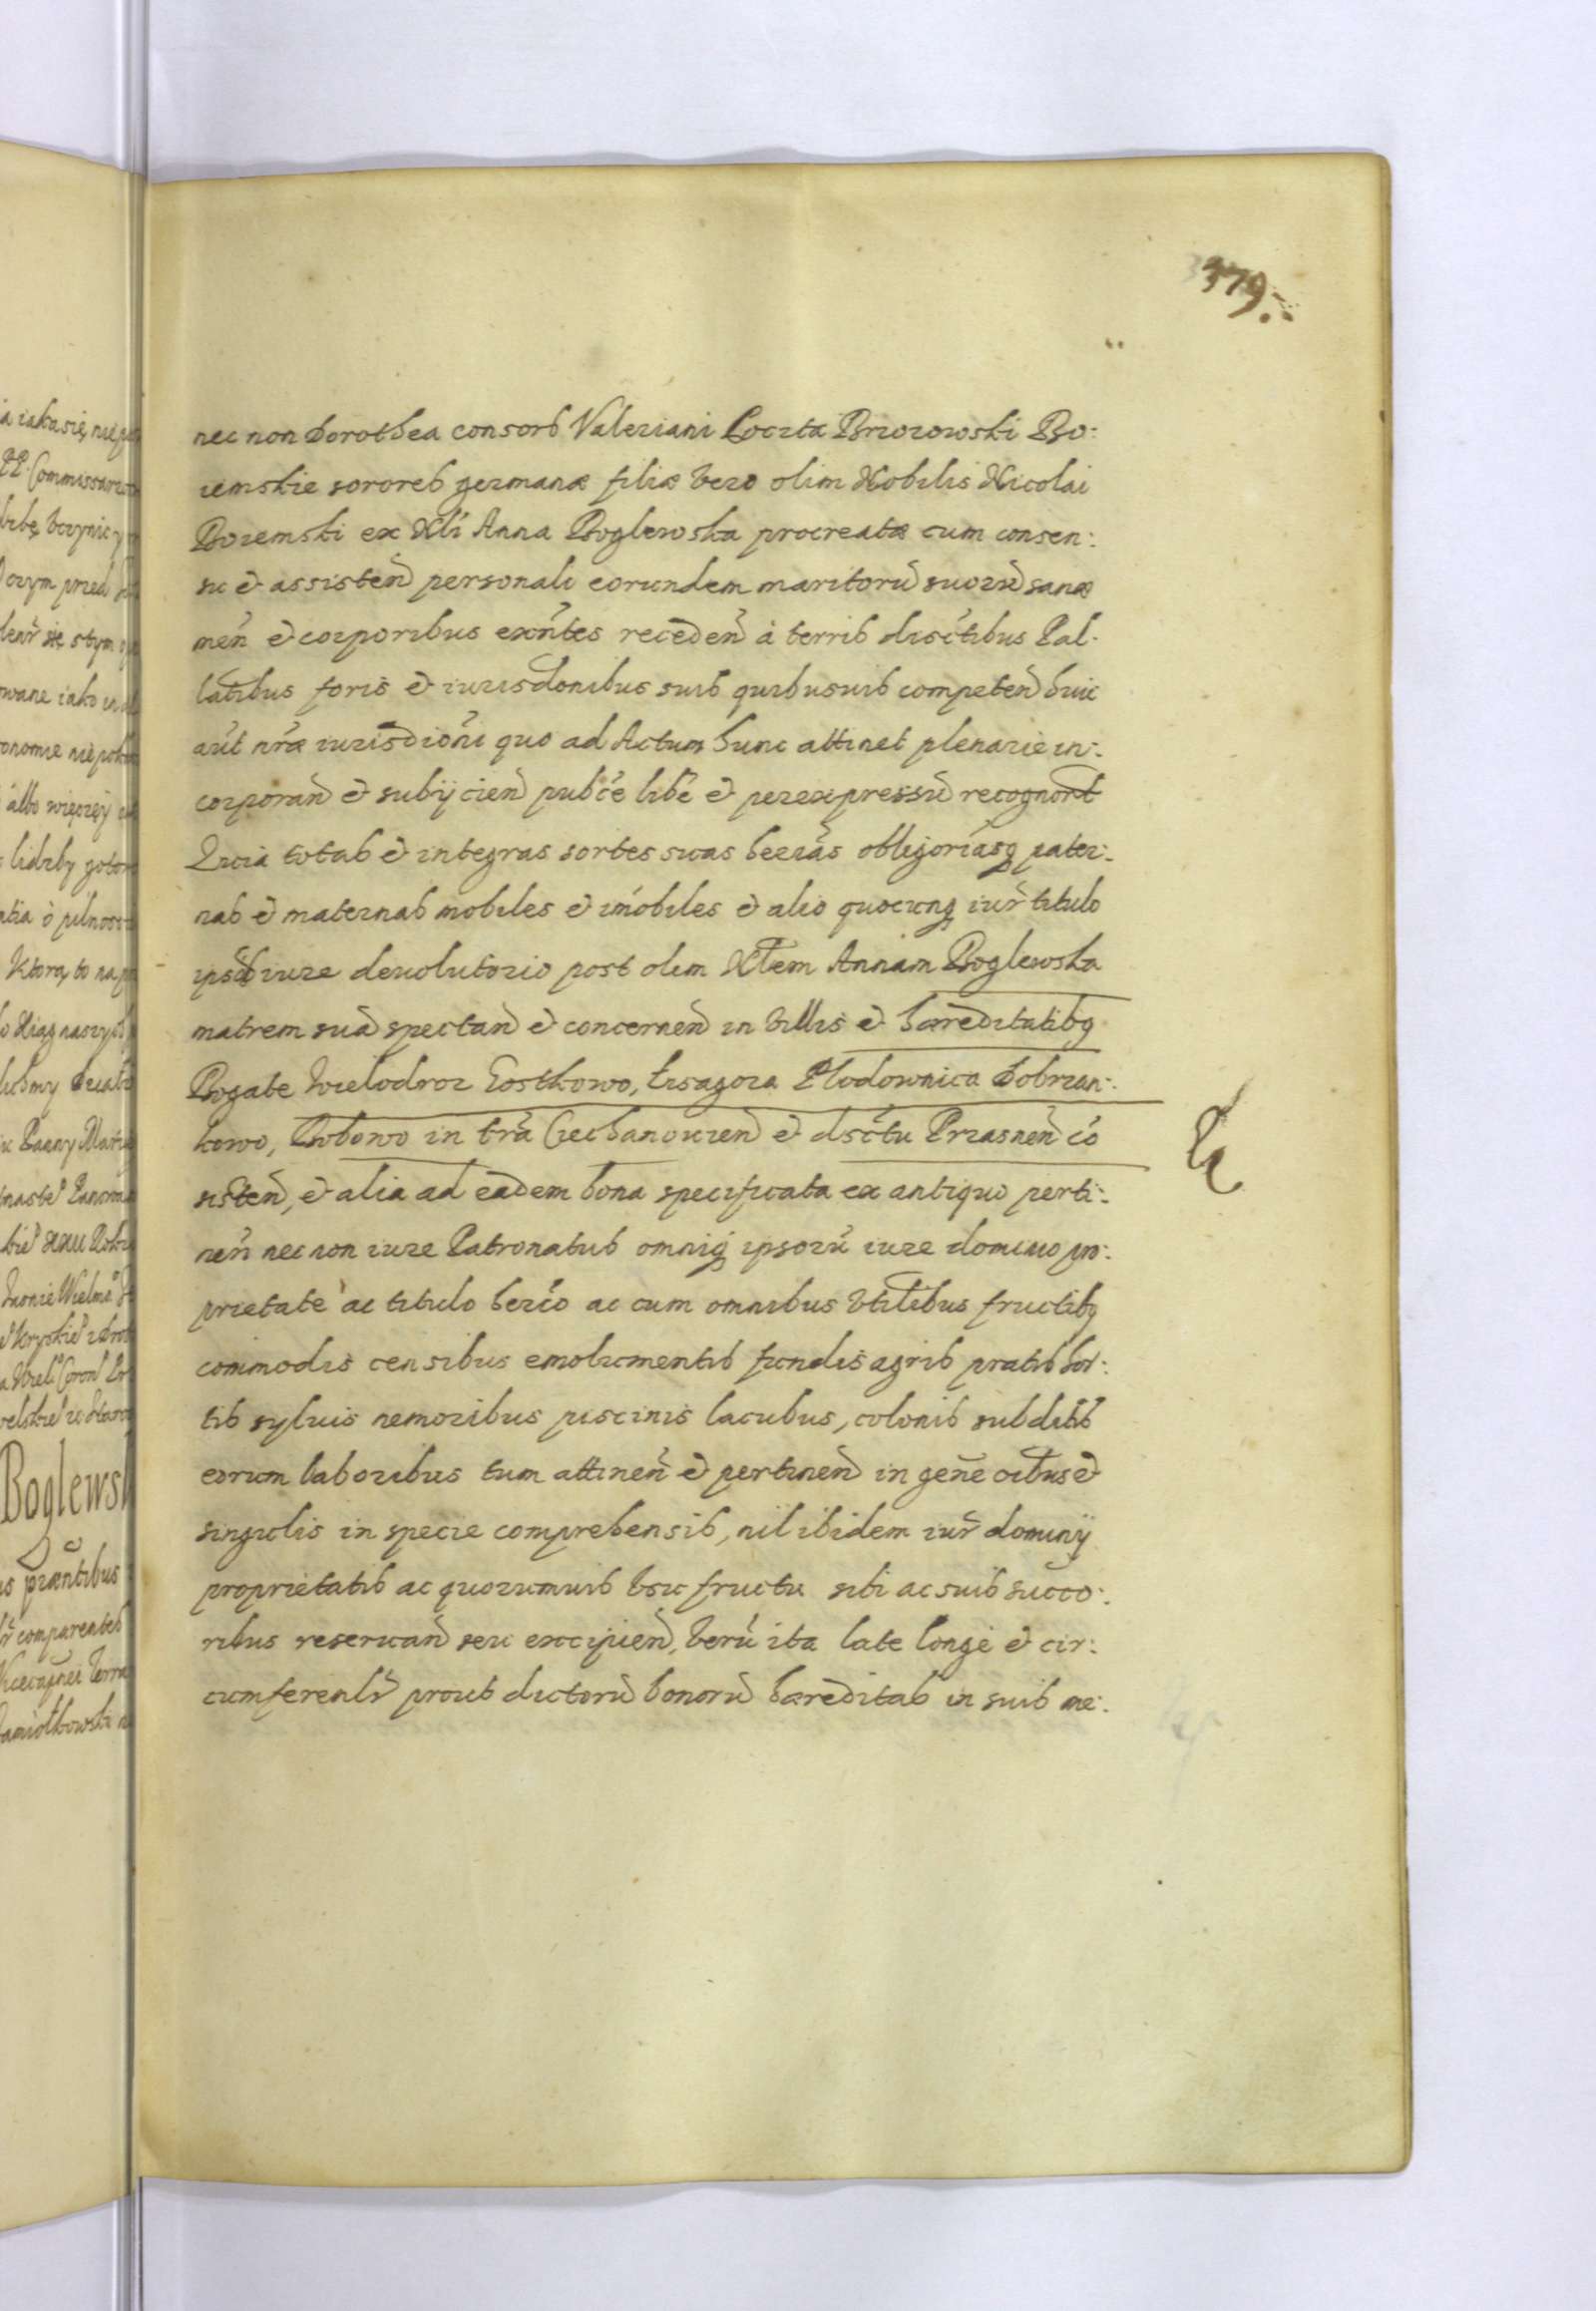 379.
nec non Dorothea consors Valeriani Poczta Brzozowski Bo:
iemskie sorores germanæ filiæ vero olim Nobilis Nicolai
Boiemski ex Nli Anna Boglewska procreatæ cum consen:
su et assisten personali eorundem maritorũ suorũ sanæ
meñ et corporibus exñtes receden à terris disctibus Pal:
latibus foris et iurisdonibus suis quibusuis competen huic
aut nræ iurisdioni quo ad Actum hunc attinet plenarie in:
corporan et subijcien pubce libe et perexpressũ recognort
Quia totas et integras sortes suas herias obligoriasq pater:
nas et maternas mobiles et imobiles et alio quocunq iur titulo
ipsis iure deuolutorio post olim Nlem Annam Boglewska
matrem suã spectan et concernen in villis et hæreditatibq
Bogate Wielodroz Gostkowo, Lisagora Płodownica Dobrzan:
kowo, Bobowo in tra Ciechanouien et dsctu Przasnen co
sisten, et alia ad eadem bona specificata ex antiquo perti:
nen nec non iure Patronatus omniq ipsorũ iure dominio pro:
prietate ac titulo herico ac cum omnibus vtilibus fructibq
commodis censibus emolumentis fundis agris pratis hor:
tis syluis nemoribus piscinis lacubus, colonis subditis
eorum laboribus tum attinen et pertinen in gene oibus et
singulis in specie comprehensis, nil ibidem iur dominij
proprietatis ac quorumuis vsu fructu sibi ac suis succo:
ribus reseruan seu excipien, verũ ita late longe et cir:
cumferenlr prout dictorũ bonorũ hæreditas in suis me: